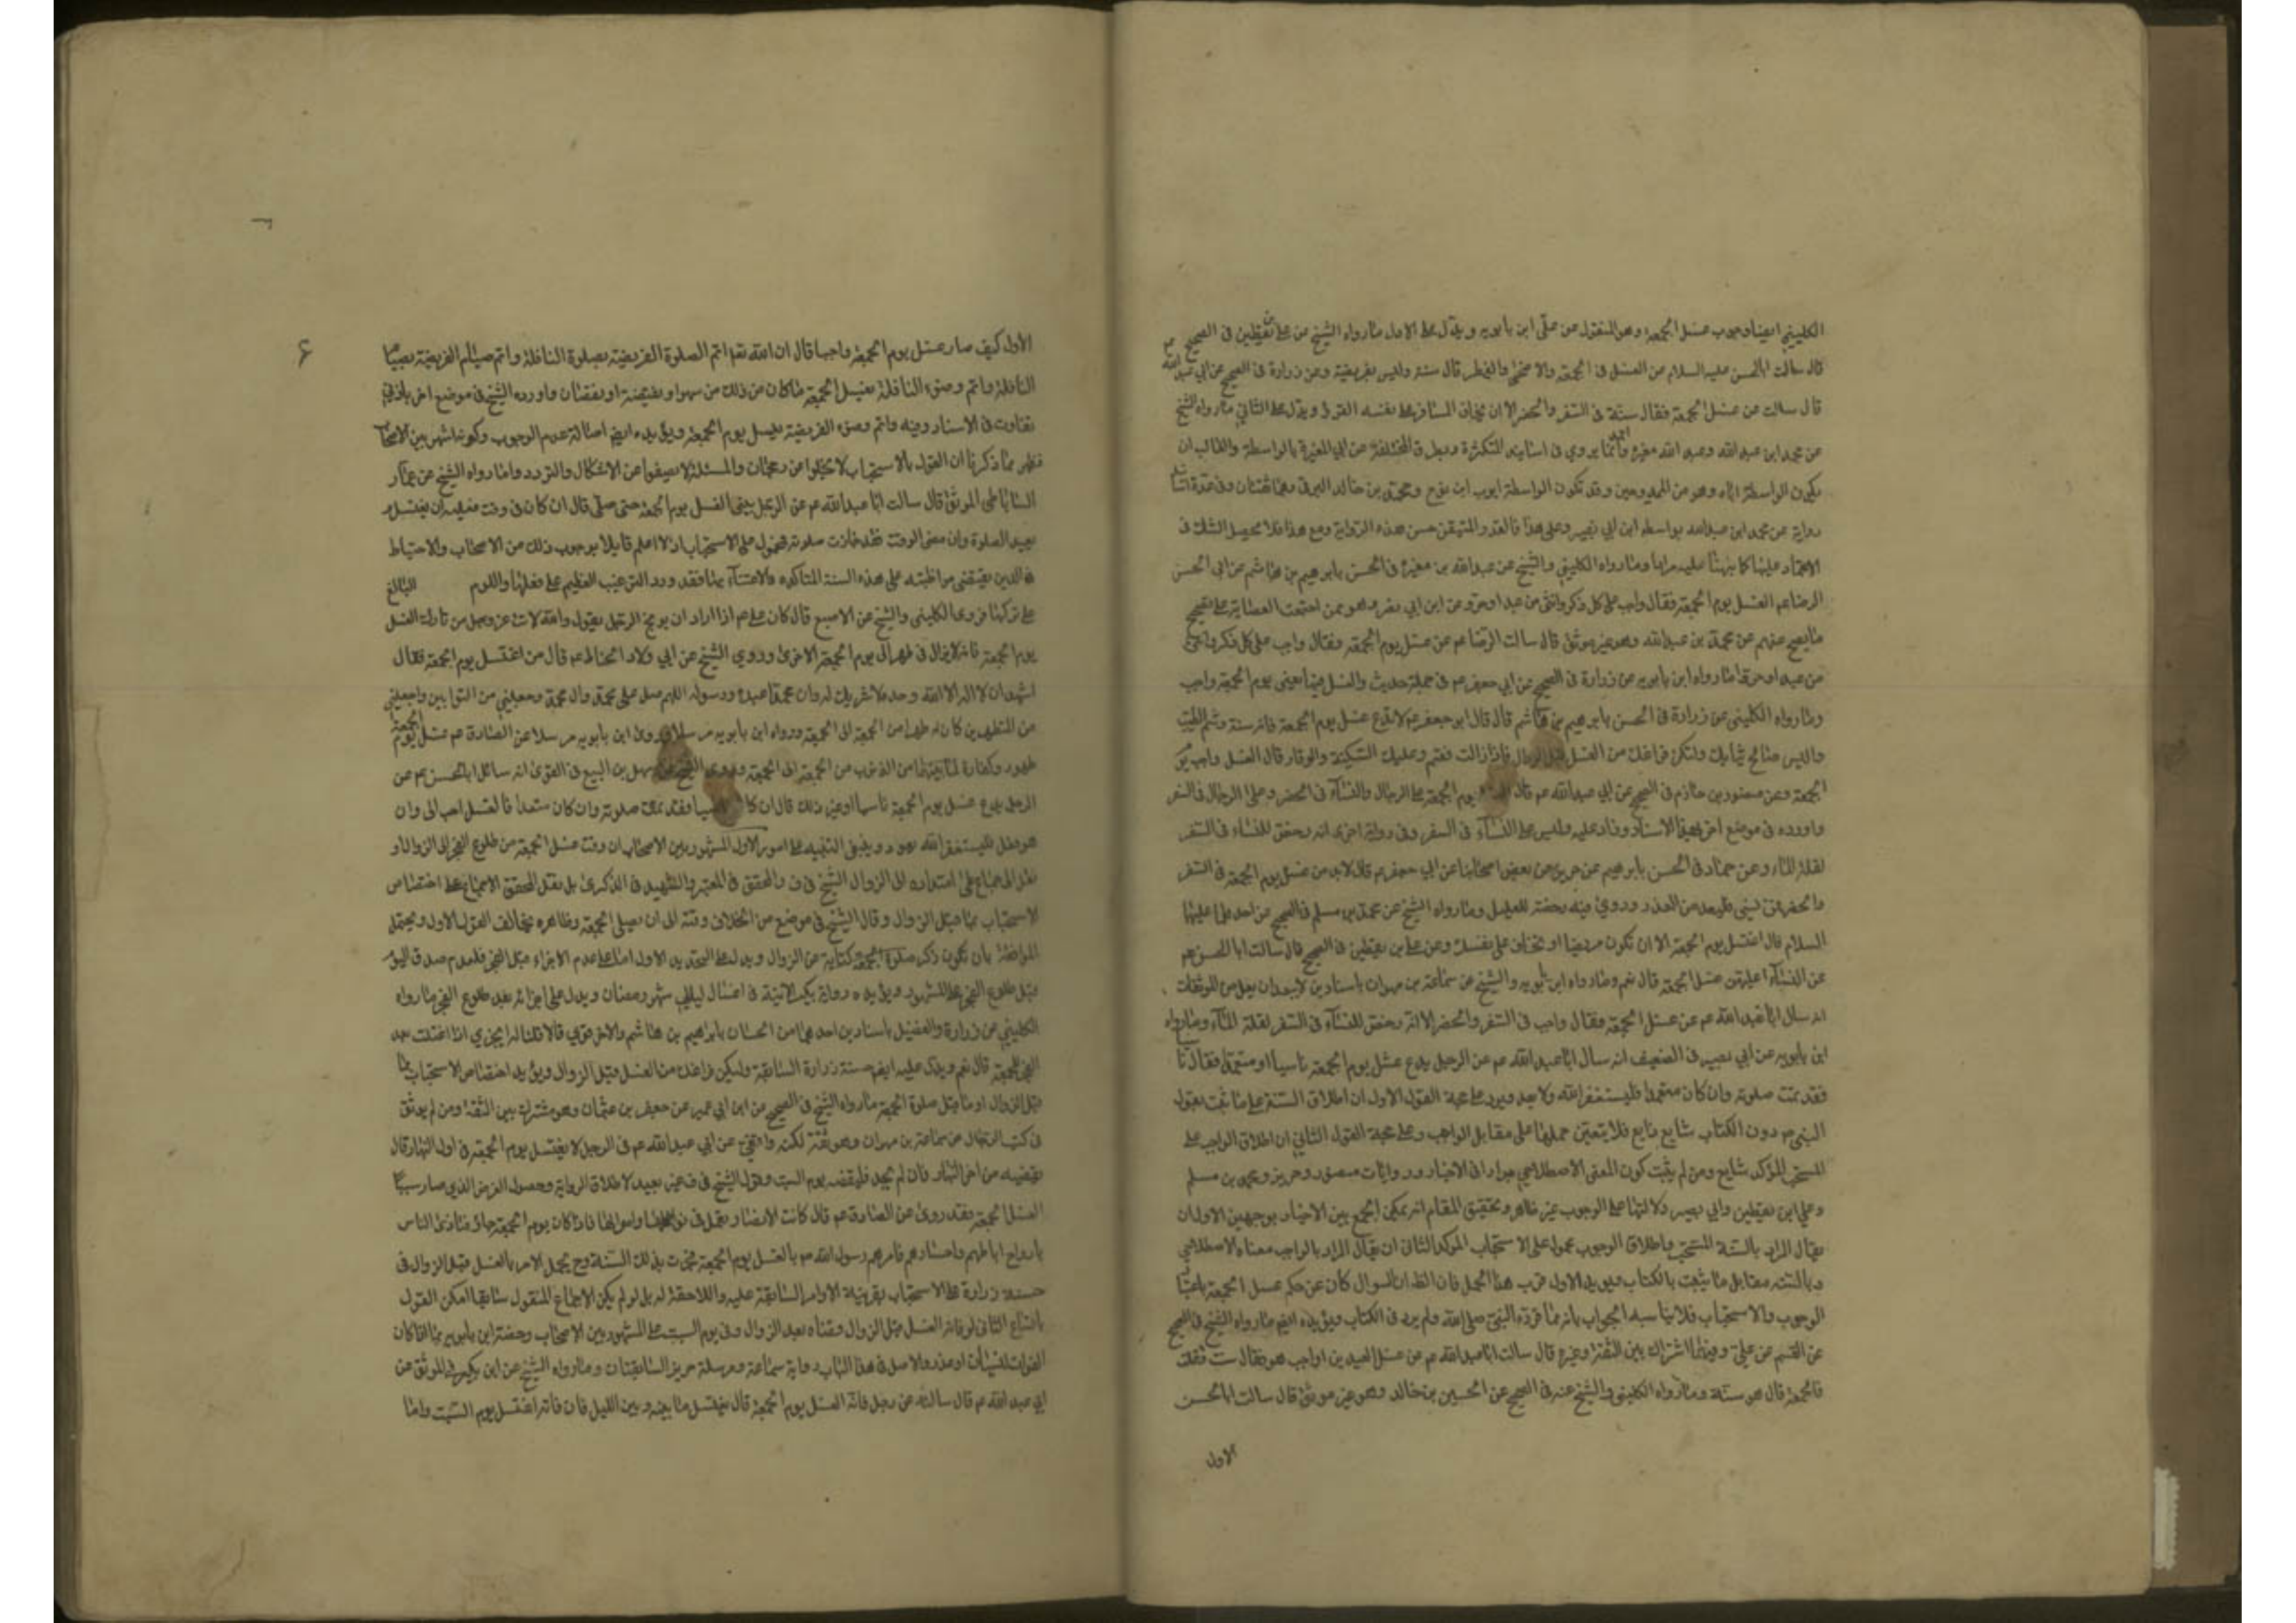 الكليني ايضا وجوب غسل الجمعة وهو المنقول عن علي ابن بابويه ويدل على الاول ما رواه الشيخ عن علي بن يقطين في الصحيح
قال سالت ابا الحسن عليه السلام عن الغسل في الجمعة والاضحى والفطر قال سنة وليس بفريضة وعن زرارة في الصحيح عن ابي عبد الله عم
قال سالت عن غسل الجمعة فقال سنة في السفر والحضر الا ان يخاف المسافر على نفسه القر ويدل على الثاني ما رواه الشيخ
عن محمد ابن عبد الله وعبد الله مغيرة احمد وانما يروي في اسانيد المتكثرة وبطرق المختلفة عن ابي المغيرة بالواسطة والغالب ان
يكون الواسطة اباه وهو من الممدوحين وقد تكون الواسطة ايوب ابن نوح ومحمد بن خالد البرقي وهما ثقتان وفي عدة اسانيد
رواية عن محمد ابن عبد الله بواسطة ابن ابي نصر وعلى هذا فالقدر المتيقن حسن هذه الرواية ومع هذا فلا يحصل الشك في
الاعتماد عليها كما نبهنا عليه مرارا وما رواه الكليني والشيخ عن عبد الله بن مغيرة في الحسن بابرهيم بن هاشم عن ابي الحسن
الرضا عم الغسل يوم الجمعة فقال واجب على كل ذكر وانثى من عبد او حر وعن ابن ابي نصر وهو ممن اجتمعت العصابة على تصحيح
ما يصح عنهم عن محمد بن عبد الله وهو غير موثق قال سالت الرضا عم عن غسل يوم الجمعة وفقال واجب على كل ذكر وانثى
من عبد او حر وما رواه ابن بابويه عن زرارة في الصحيح عن ابي جعفر عم في جملة حديث والغسل فيها يعني يوم الجمعة واجب
وما رواه الكليني عن زرارة في الحسن بابرهيم بن هاشم قال قال ابو جعفر عم لا تدع غسل يوم الجمعة فانه سنة وشم الطيب
والبس صالح ثيابك وليكن فراغك من الغسل قبل الزوال فاذا زالت فقم وعليك السكينة والوقار قال الغسل واجب يوم
الجمعة وعن منصور بن حازم في الصحيح عن ابي عبد الله عم قال الغسل يوم الجمعة على الرجال والنساء في الحضر وعلى الرجال في السفر
واورده في موضع اخر بهذا الاسناد وزاد عليه وليس على النساء في السفر وفي رواية اخرى انه رخص للنساء في السفر
لقلة الماء وعن حماد في الحسن بابرهيم عن حريز عن بعض اصحابنا عن ابي جعفر عم قال لابد من غسل يوم الجمعة في السفر
والحضر فمن نسي فليعد من الغد وروي فيه رخصة للعليل وما رواه الشيخ عن محمد بن مسلم في الصحيح عن احدهما عليهما
السلام قال اغتسل يوم الجمعة الا ان تكون مريضا او تخاف على نفسك وعن علي بن يقطين في الصحيح قال سالت ابا الحسن عم
عن النساء اعليهن غسل الجمعة قال نعم وما رواه ابن بابويه والشيخ عن سماعة بن مهران باسنادين لا يبعدان يعد من الموثقات
انه سال ابا عبد الله عم عن غسل الجمعة فقال واجب في السفر والحضر الا انه رخص للنساء في السفر لقلة الماء وما رواه
ابن بابويه عن ابي بصير في الضعيف انه سال ابا عبد الله عم عن الرجل يدع غسل يوم الجمعة ناسيا او متعمدا فقال
فقد تمت صلوته وان كان متعمدا فليستغفر الله ولا يعد ويرد على حجة القول الاول ان اطلاق السنة على ما ثبت بقول
النبي ص دون الكتاب شايع ذايع فلا يتعين حملها على مقابل الواجب وعلى حجة القول الثاني ان اطلاق الواجب على
المستحب المؤكد شايع ومن لم يثبت كون المعنى الاصطلاحي مرادا في الاخبار وروايات منصور وحريز ومحمد بن مسلم
وعلي ابن يقطين وابي بصير دلالتها على الوجوب غير ظاهر وتحقيق المقام انه يمكن الجمع بين الاخبار بوجهين الاول ان
يقال المراد بالسنة المستحب واطلاق الوجوب محمول على الاستحباب المؤكد الثاني ان يقال المراد بالواجب معناه الاصطلاحي
وبالسنة مقابل ما يثبت بالكتاب ويؤيد الاول قرب هذا الحمل فان الظ ان السوال كان عن حكم غسل الجمعة باعتبار
الوجوب والاستحباب فلا يناسبه الجواب بانه مما قرره النبي صلى الله ولم يرد في الكتاب ويؤيده ايضا ما رواه الشيخ في الصحيح
عن القسم عن علي وفيهما اشتراك بين الثقة وغيره قال سالت ابا عبد الله عم عن غسل العيدين اواجب هو فقال سنة فقلت
فالجمعة قال هو سنة وما رواه الكليني والشيخ عنه في الصحيح عن الحسين بن خالد وهو غير موثق قال سالت ابا الحسن
الاول
الاول كيف صار غسل يوم الجمعة واجبا قال ان الله تعالى اتم الصلوة الفريضة بصلوة النافلة واتم صيام الفريضة بصيام
النافلة واتم وضوء النافلة بغسل الجمعة ما كان من ذلك من سهو او تقصير او نقصان واورده الشيخ في موضع اخر بادنى
تفاوت في الاسناد وفيه واتم وضوء الفريضة بغسل يوم الجمعة ويؤيده ايضا اصالة عدم الوجوب وكونه اشهر بين الاصحاب
فظهر مما ذكرنا ان القول بالاستحباب لا يخلوا عن رجحان والمسئلة لا يصفوا عن الاشكال والتردد واما رواه الشيخ عن عمار
الساباطي الموثق قال سالت ابا عبد الله عم عن الرجل ينسى الغسل يوم الجمعة حتى صلى قال ان كان في وقت فعليه ان يغتسل و
يعيد الصلوة وان مضى الوقت فقد جازت صلوته فمحمول على الاستحباب اذ لا اعلم قايلا بوجوب ذلك من الاصحاب والاحتياط
في الدين يقتضي مواظبته على هذه السنة المتاكده والاعتناء بها فقد ورد الترغيب العظيم على فعلها واللوم البالغ
على تركها فروى الكليني والشيخ عن الاصبغ قال كان علي عم اذا اراد ان يوبخ الرجل يقول والله لانت اعجز من تارك الغسل
يوم الجمعة فانه لا يزال في طهر الى يوم الجمعة الاخرى وروي الشيخ عن ابي ولاد الحناط عم قال من اغتسل يوم الجمعة فقال
اشهد ان لا اله الا الله وحده لا شريك له وان محمدا عبده ورسوله اللهم صل على محمد وال محمد واجعلني من التوابين واجعلني
من المتطهرين كان له طهرا من الجمعة الى الجمعة ورواه ابن بابويه مرسلا وروى ابن بابويه مرسلا عن الصادق عم غسل يوم الجمعة
طهور وكفارة لما بينهما من الذنوب من الجمعة الى الجمعة وروى الشيخ عن سهل بن اليسع في القوي انه سائل ابا الحسن عم عن
الرجل يدع غسل يوم الجمعة ناسيا او غير ذلك قال ان كان ناسيا فقد تمت صلوته وان كان متعمدا فالغسل احب الى وان
هو فعل فليستغفر الله يعود وينبغي التنبيه على امور الاول المشهور بين الاصحاب ان وقت غسل الجمعة من طلوع الفجر الى الزوال و
نقل الاجماع على امتداده الى الزوال الشيخ في ف والمحقق في المعتبر والشهيد في الذكرى بل نقل المحقق الاجماع على اختصاص
الاستحباب بما قبل الزوال وقال الشيخ في موضع من الخلاف وقته الى ان يصلي الجمعة وظاهره يخالف القول الاول ويحتمل
الموافقة بان يكون ذكر صلوة الجمعة كناية عن الزوال ويدل على التحديد الاول اما على عدم الاجزاء قبل الفجر فلعدم صدق اليوم
قبل طلوع الفجر على المشهور ويؤيده رواية بكير الاتية في اغسال ليالي شهر رمضان ويدل على اجزائه بعد طلوع الفجر ما رواه
الكليني عن زرارة والفضيل باسنادين احدهما من الحسان بابراهيم بن هاشم والاخر قوي قالا قلنا له ايجزي اذا اغتسلت بعد
الفجر للجمعة قال نعم ويدل عليه ايضا حسنة زرارة السابقة وليكن فراغك من الغسل قبل الزوال ويؤيد اختصاص الاستحباب بما
قبل الزوال او ما قبل صلوة الجمعة ما رواه الشيخ في الصحيح عن ابن ابي عمير عن جعفر بن عثمان وهو مشترك بين الثقة ومن لم يوثق
في كتب الرجال عن سماعة بن مهران وهو ثقة لكنه واقفي عن ابي عبد الله عم في الرجل لا يغتسل يوم الجمعة في اول النهار قال
يقضيه من اخر النهار فان لم يجد فليقضه يوم السبت وقول الشيخ في ف غير بعيد لاطلاق الرواية وحصول الغرض الذي صار سببا
لغسل الجمعة فقد روى عن الصادق عم قال كانت الانصار تعمل في نواضحها واموالها فاذا كان يوم الجمعة جاؤ فتاذى الناس
بارواح اباطهم واجسادهم فامرهم رسول الله ص بالغسل يوم الجمعة فجرت بذلك السنة وح يحمل الامر بالغسل قبل الزوال في
حسنة زرارة على الاستحباب بقرينة الاوامر السابقة عليه واللاحقة له بل لو لم يكن الاجماع المنقول سابقا امكن القول
باتساع الثاني لو فاته الغسل قبل الزوال وقضاه بعد الزوال وفي يوم السبت على المشهور بين الاصحاب وخصه ابن بابويه بما اذا كان
الفوات للنسيان او عذر والاصل في هذا الباب رواية سماعة ومرسلة حريز السابقتان وما رواه الشيخ عن ابن بكير في الموثق عن
ابي عبد الله عم قال سالته عن رجل فاته الغسل يوم الجمعة قال يغتسل ما بينه وبين الليل فان فاته اغتسل يوم السبت واما